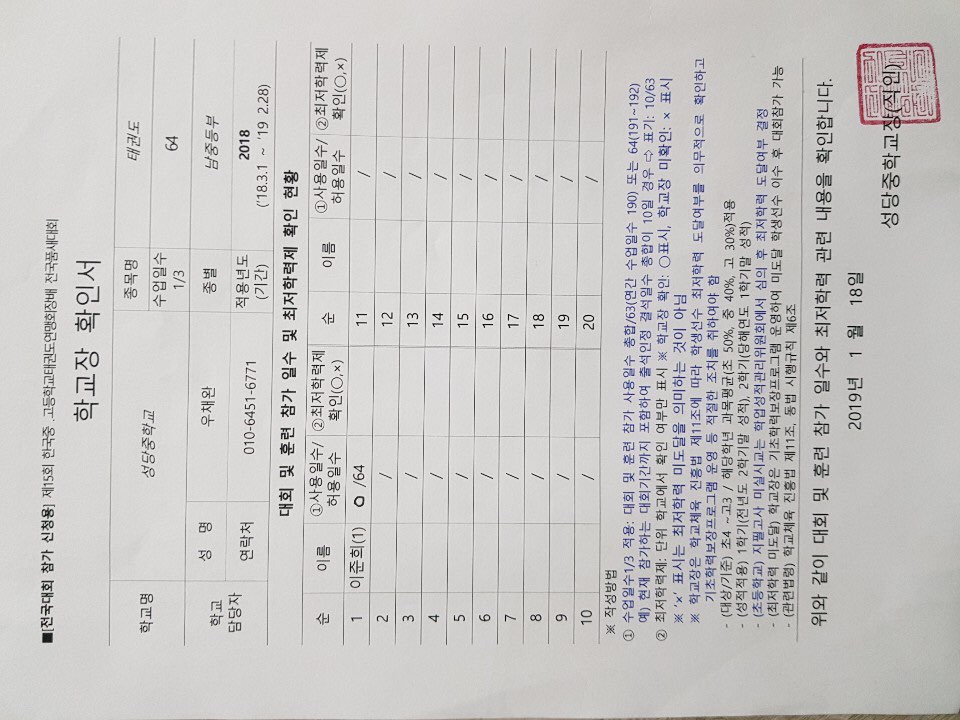 ■[전국대회 참가 신청용] 제15회 한국중 고등학교태권도연맹회장배 전국품새대회
학교장 확인서
학교명 성당중학교 종목명 태권도
수업일수 1/3 64
학교 담당자 성 명 우채완 종별 남중등부
연락처 010-6451-6771 적용년도 (기간) 2018 ('18.3.1 ~ '19 2.28)
대회 및 훈련 참가 일수 및 최저학력제 확인 현황
순 이름 ①사용일수/허용일수 ②최저학력제 확인(○,×) 순 이름 ①사용일수/허용일수 ②최저학력제 확인(○,×)
1 이준희(1) 0 /64 11 /
2 / 12 /
3 / 13 /
4 / 14 /
5 / 15 /
6 / 16 /
7 / 17 /
8 / 18 /
9 / 19 /
10 / 20 /
※ 작성방법
① 수업일수1/3 적용: 대회 및 훈련 참가 사용일수 총합/63(연간 수업일수 190) 또는 64(191~192)
예) 현재 참가하는 대회기간까지 포함하여 출석인정 결석일수 총합이 10일 경우 ⇨ 표기: 10/63
② 최저학력제: 단위 학교에서 확인 여부만 표시 ※ 학교장 확인: ○표시, 학교장 미확인: × 표시
※ '×' 표시는 최저학력 미도달을 의미하는 것이 아님
※ 학교장은 학교체육 진흥법 제11조에 따라 학생선수 최저학력 도달여부를 의무적으로 확인하고
기초학력보장프로그램 운영 등 적절한 조치를 취하여야 함
- (대상/기준) 초4 ~고3 / 해당학년 과목평균(초 50%, 중 40%, 고 30%)적용
- (성적적용) 1학기(전년도 2학기말 성적), 2학기(당해연도 1학기말 성적)
- (초등학교) 지필고사 미실시교는 학업성적관리위원회에서 심의 후 최저학력 도달여부 결정
- (최저학력 미도달) 학교장은 기초학력보장프로그램 운영하여 미도달 학생선수 이수 후 대회참가 가능
- (관련법령) 학교체육 진흥법 제11조, 동법 시행규칙 제6조
위와 같이 대회 및 훈련 참가 일수와 최저학력 관련 내용을 확인합니다.
2019년 1 월 18일
성당중학교장(직인)